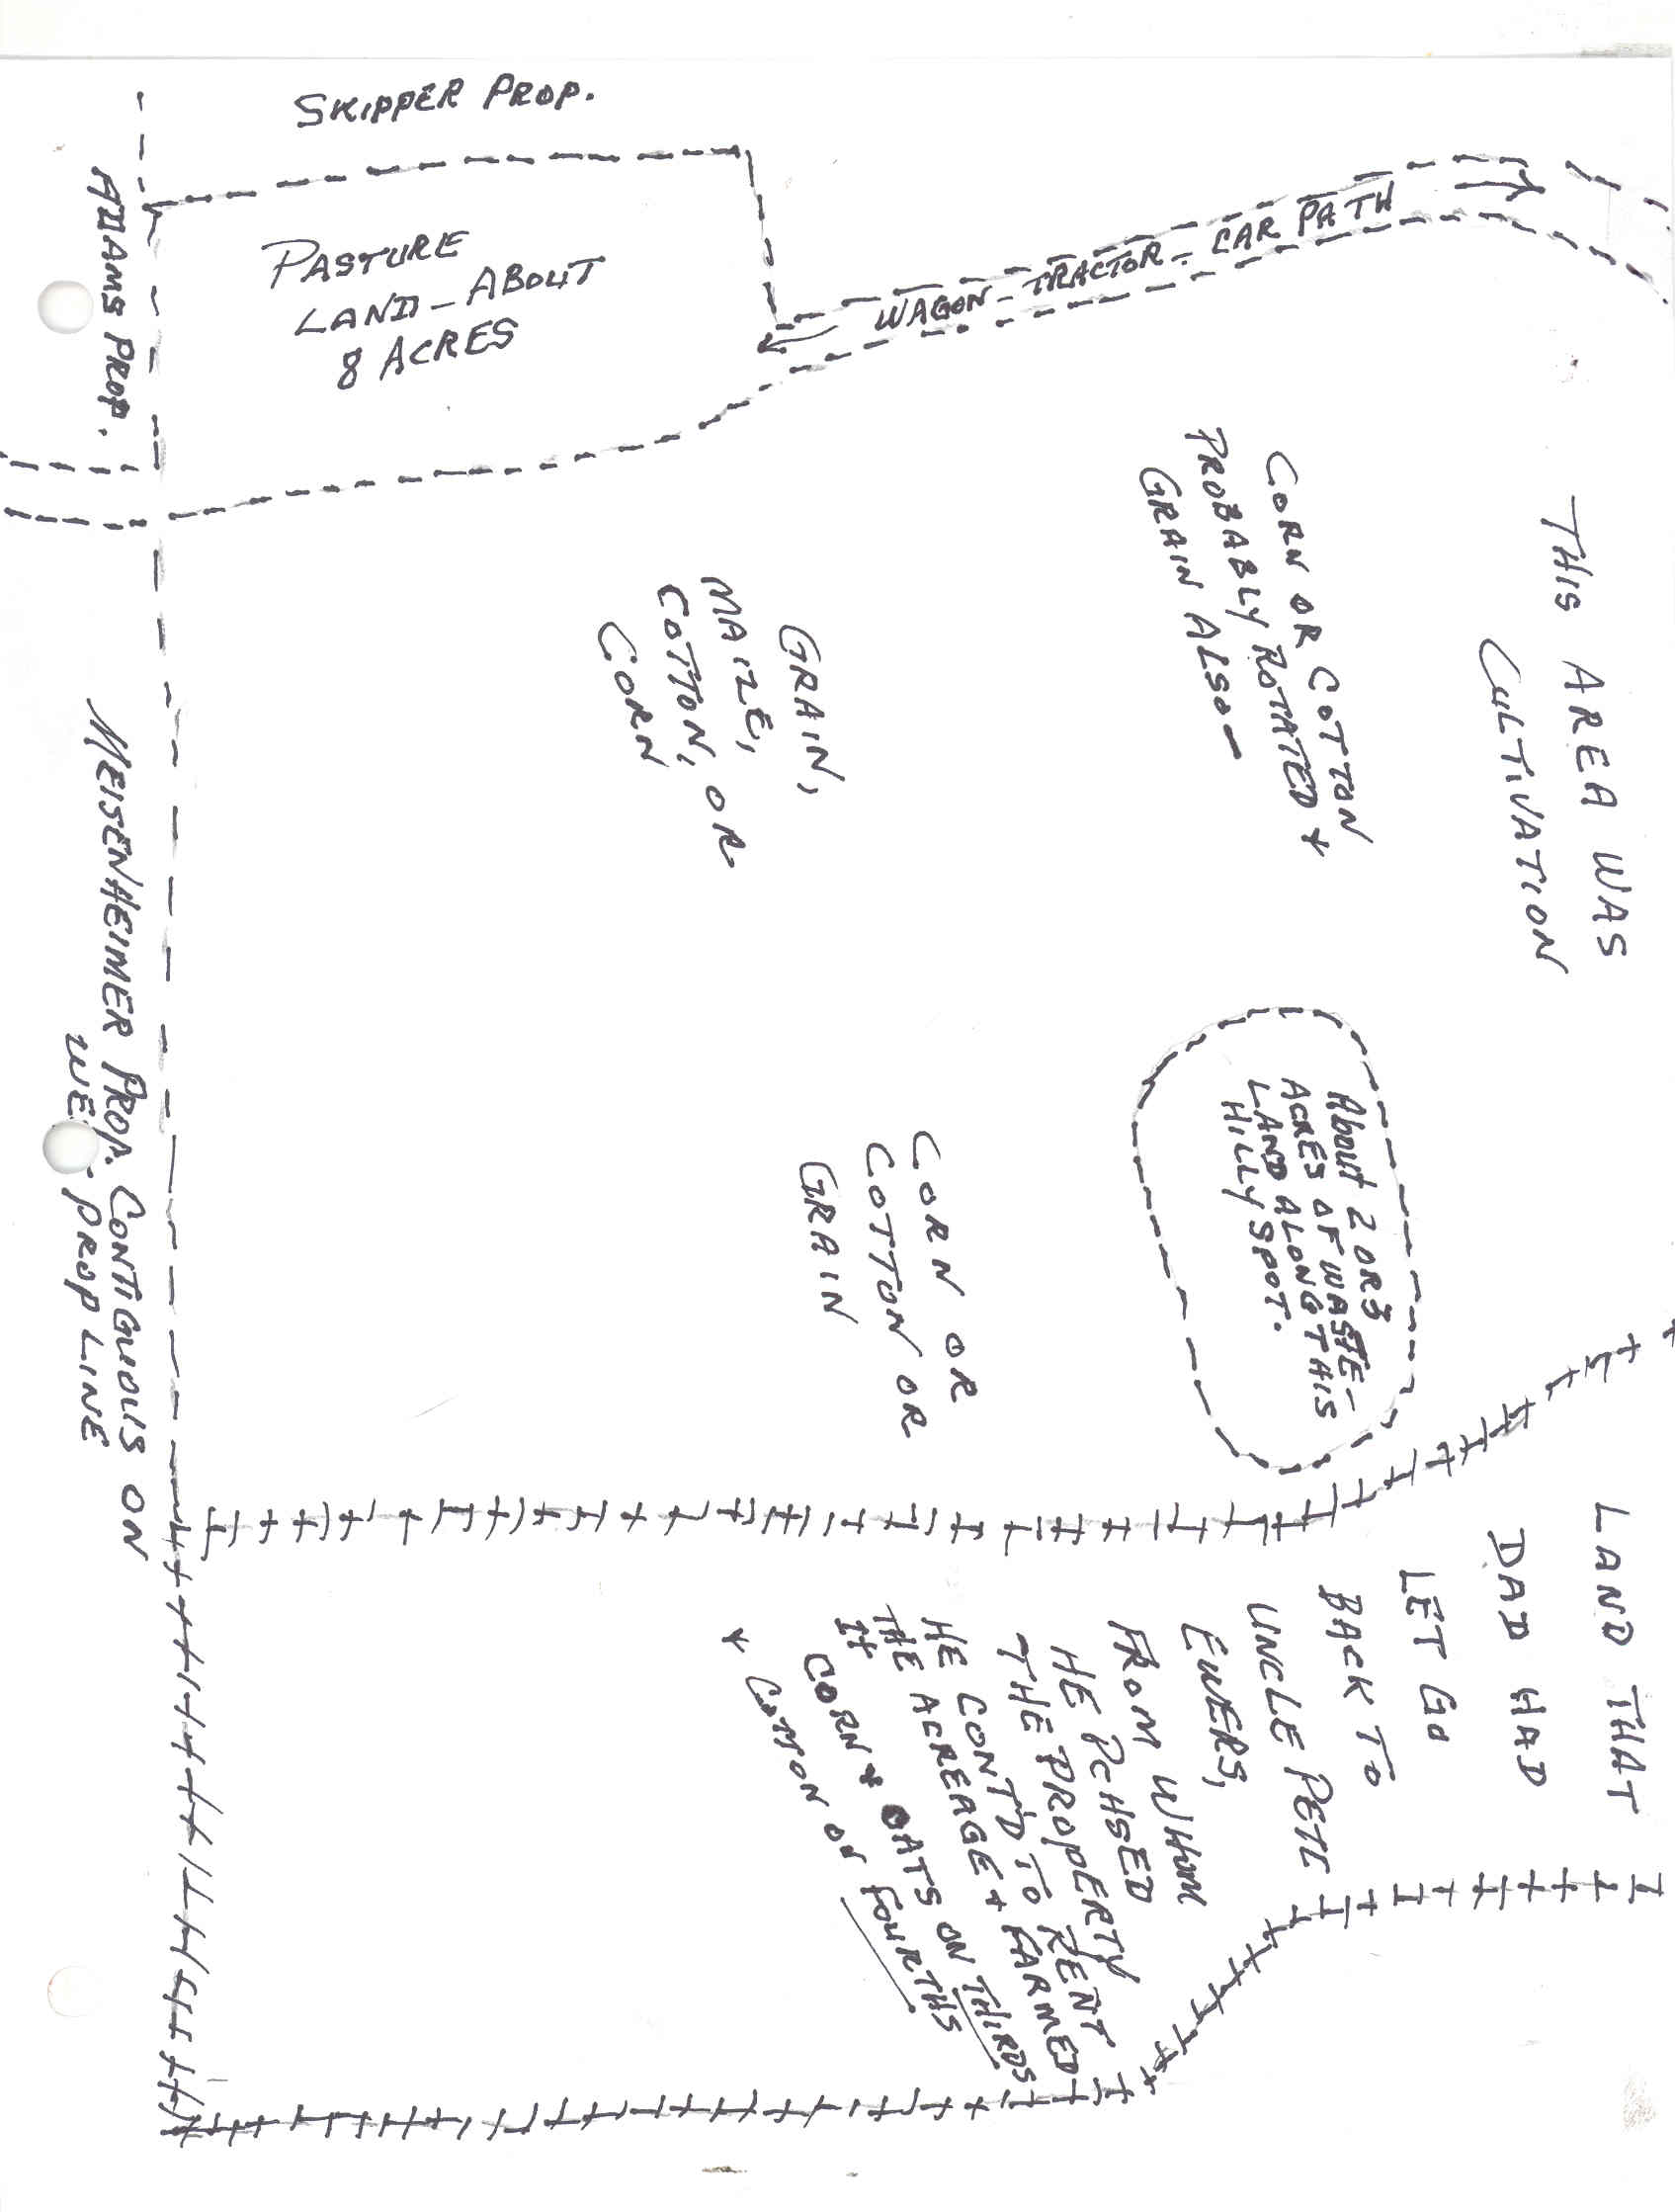 SKIPPER PROP.
ADAMS PROP.
PASTURE
LAND - ABOUT
8 ACRES
WAGON - TRACTOR - CAR PATH
THIS AREA WAS
CULTIVATION
CORN OR COTTON
PROBABLY ROTATED +
GRAIN ALSO -
GRAIN,
MAIZE,
COTTON, OR
CORN
About 2 OR 3
ACRES OF WASTE-
LAND ALONG THIS
HILLY SPOT.
CORN OR
COTTON OR
GRAIN
MEISENHEIMER PROP. CONTIGUOUS ON
PROP LINE
LAND THAT
DAD HAD
LET GO
BACK TO
UNCLE PETE
EWERS,
FROM WHOM
HE PCHSED
THE PROPERTY
HE CONT'D TO RENT
THE ACREAGE + FARMED
IT
CORN + OATS ON THIRDS
+ COTTON ON FOURTHS